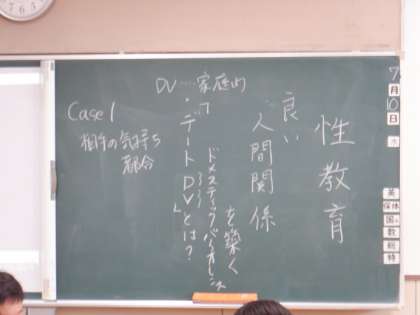 性教育
良い
人間関係
を築く
ドメスティックバイオレンス
・「デートDVとは?」
DV……家庭内
Case 1
相手の気持ち
都合
7
月
10
日
水
英
保体
国
数
総
特